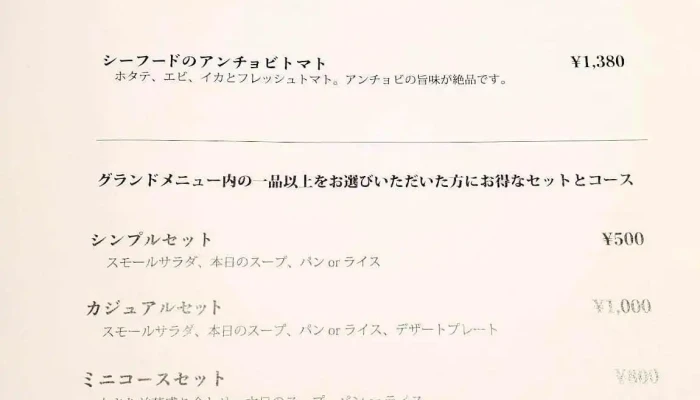 シーフードのアンチョビトマト ¥1,380
ホタテ、エビ、イカとフレッシュトマト。アンチョビの旨味が絶品です。
グランドメニュー内の一品以上をお選びいただいた方にお得なセットとコース
シンプルセット ¥500
スモールサラダ、本日のスープ、パン or ライス
カジュアルセット ¥1,000
スモールサラダ、本日のスープ、パン or ライス、デザートプレート
ミニコースセット ¥800